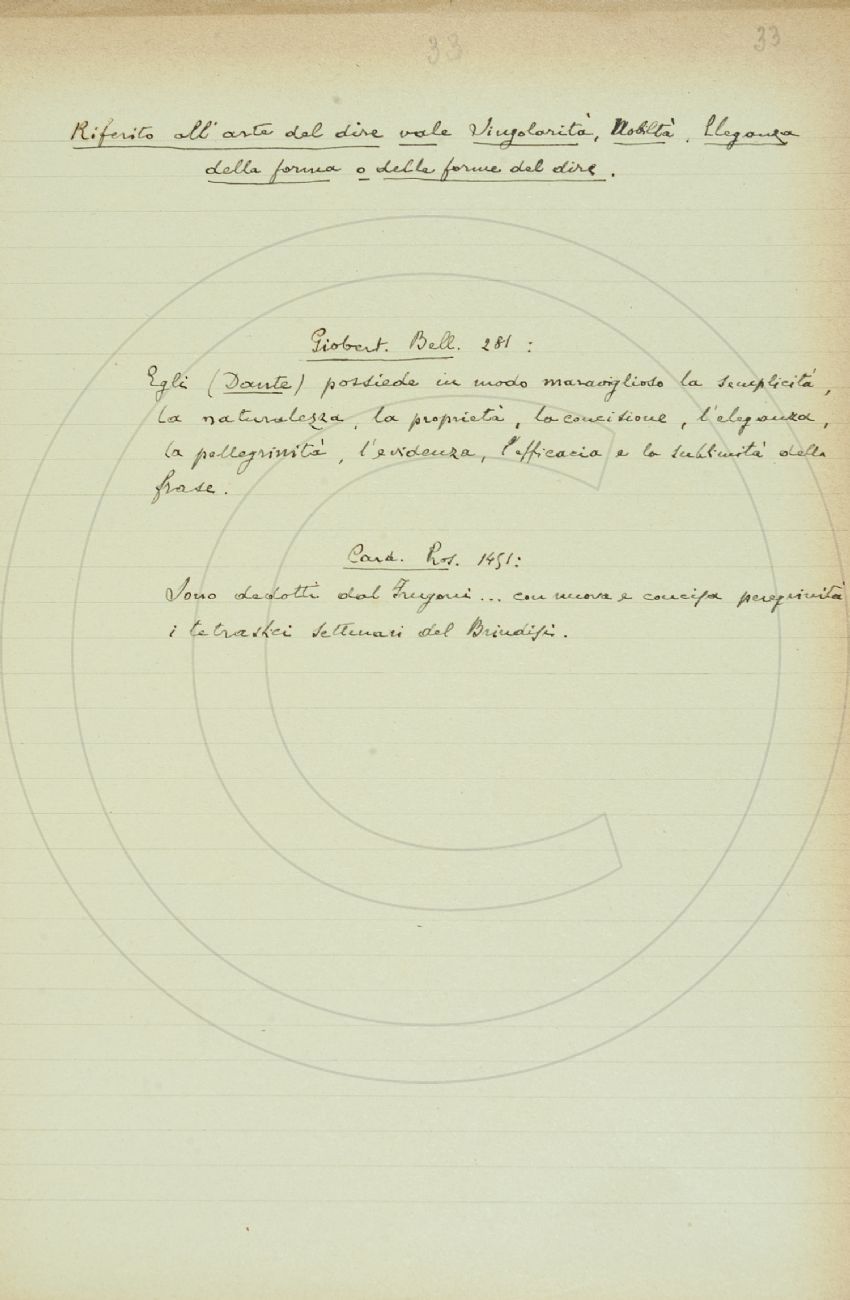 33 33
Riferito all'arte del dire vale Singolarità, Nobiltà, Eleganza
della forma o delle forme del dire.
Giobert. Bell. 281:
Egli (Dante) possiede in modo maraviglioso la semplicità,
la naturalezza, la proprietà, la concisione, l'eleganza,
la pellegrinità, l'evidenza, l'efficacia e la sublimità della
frase.
Card. Pros. 1451:
Sono dedotti dal Frugoni... con nuova e concisa peregrinità
i tetrastici settenari del Brindisi.